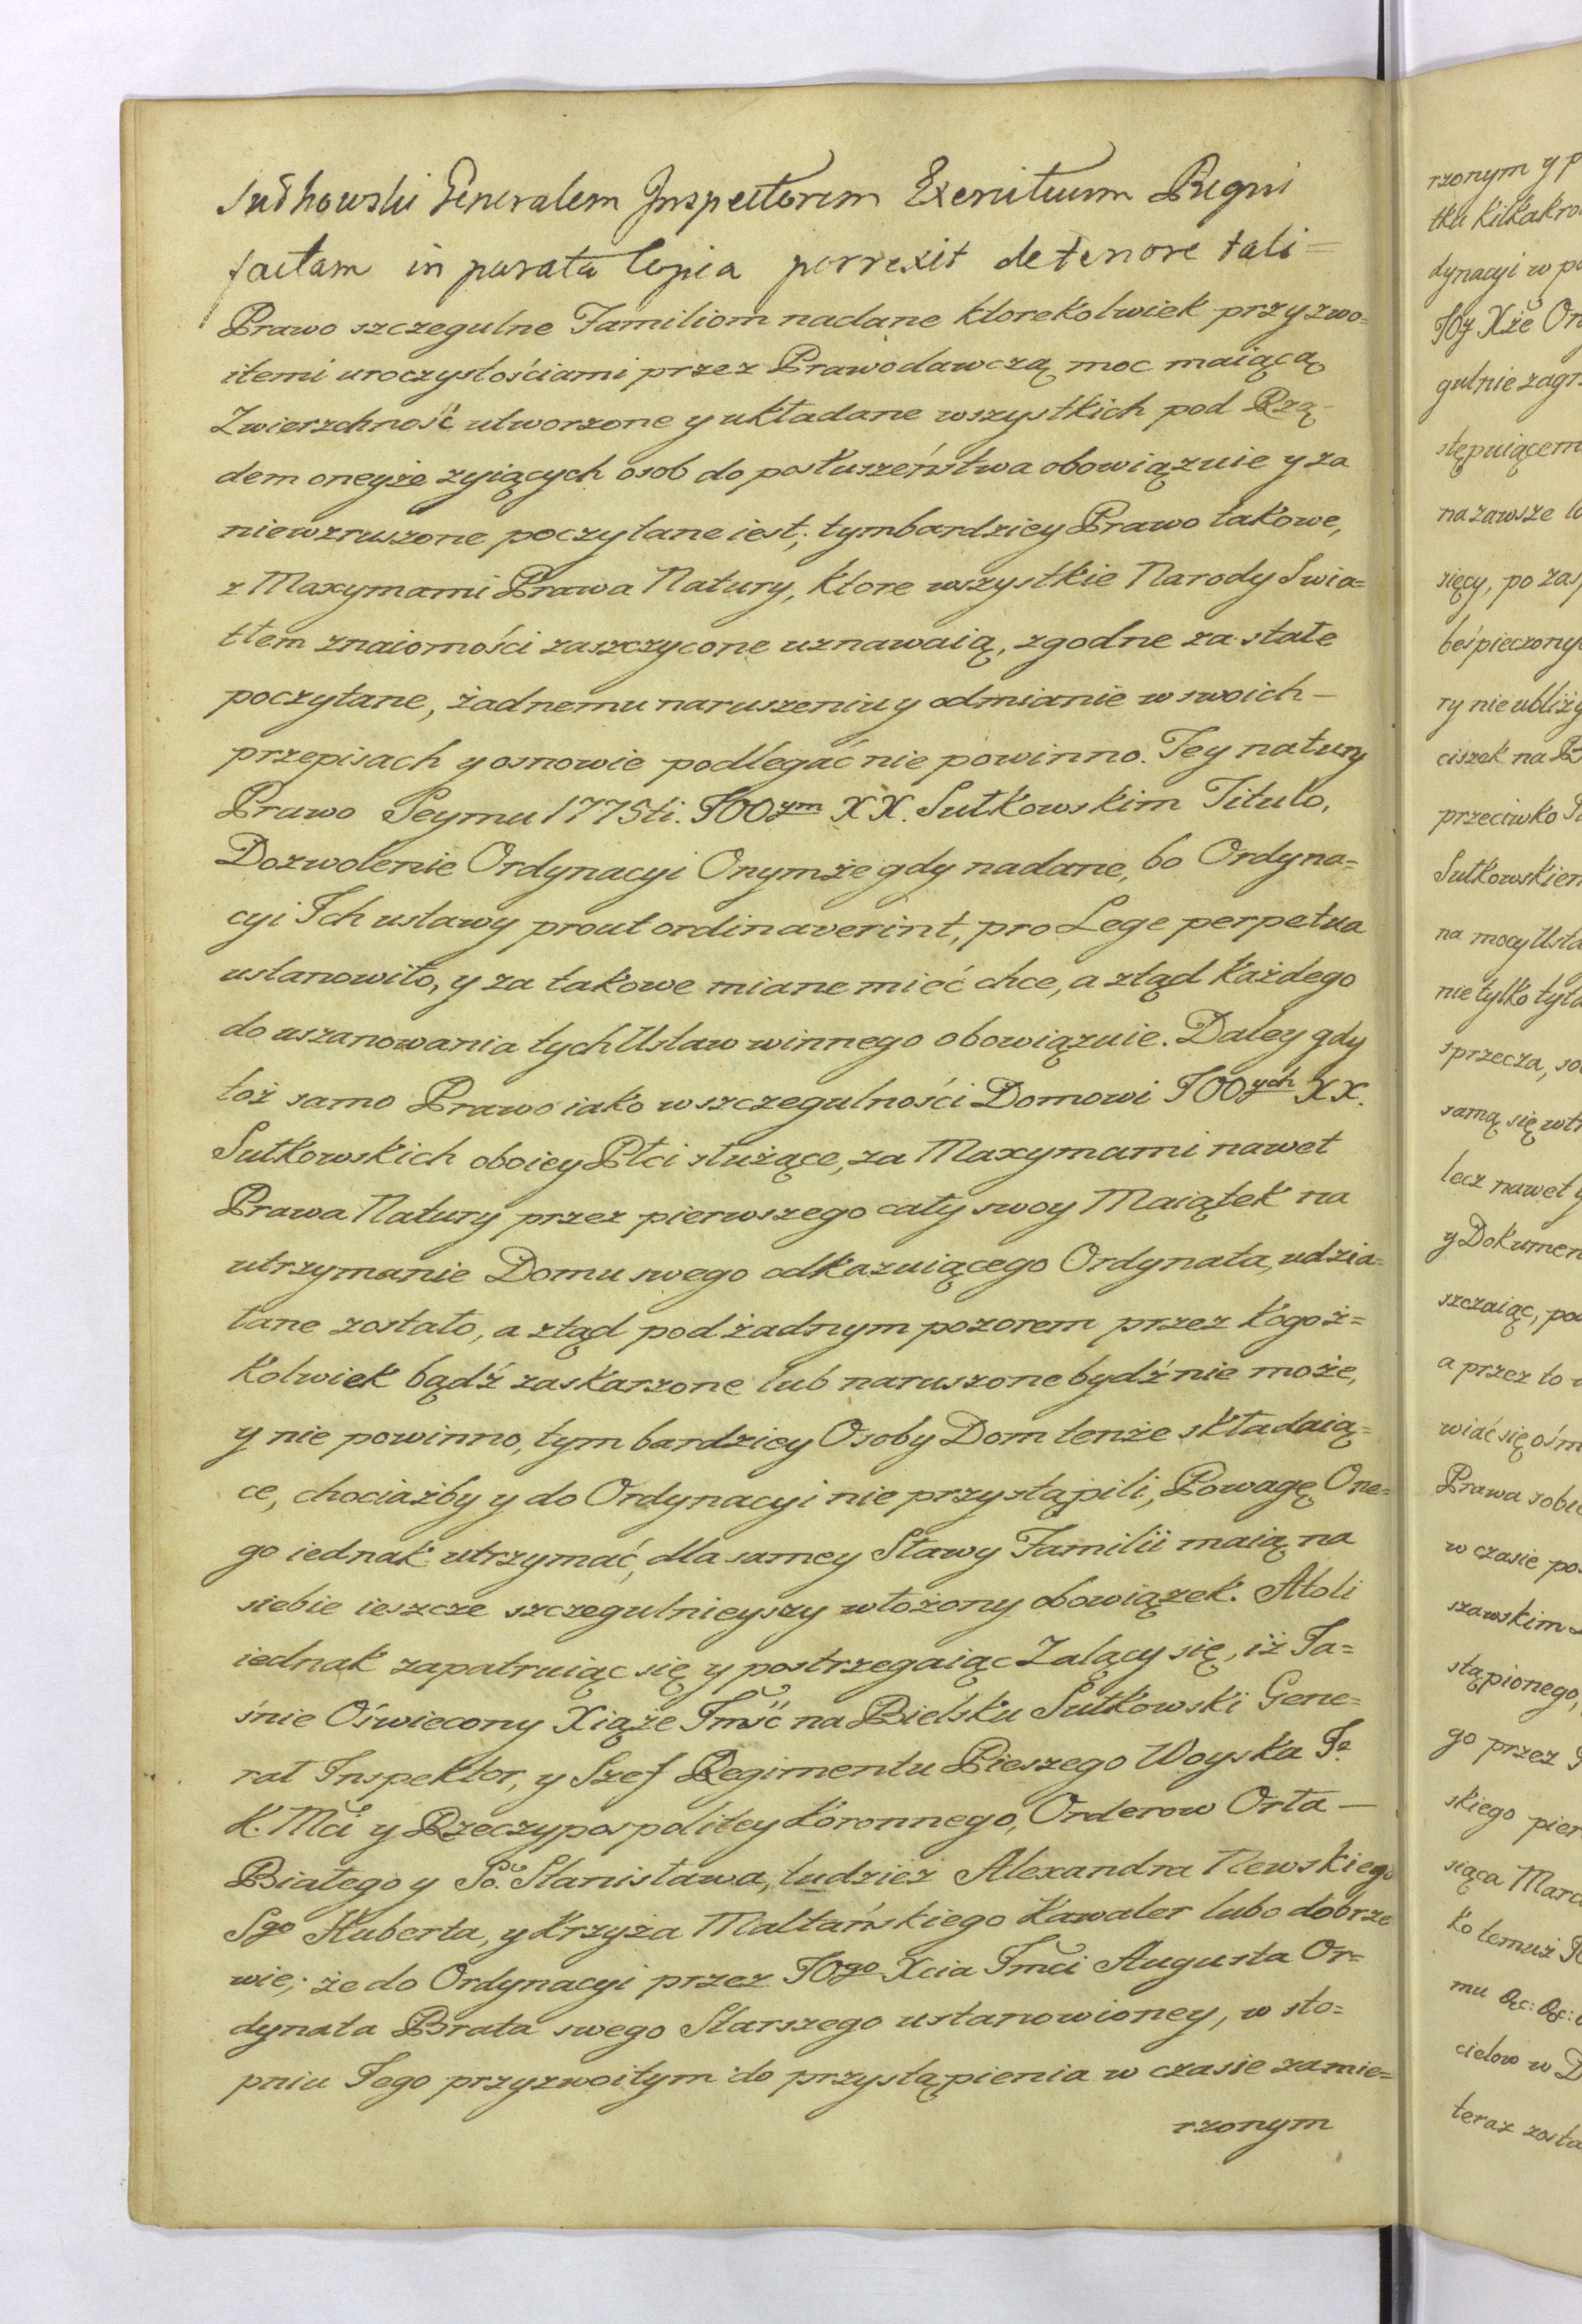 Sułkowski Generalem Inspectorem Exercituum Regni
factam in parata Copia porrexit de tenore tali =
Prawo szczegulne Familiom nadane ktorekolwiek przyzwo=
itemi uroczystościami przez Prawodawczą moc maiącą
Zwierzchność utworzone y układane wszystkich pod Rzą-
dem oneyże zyiących osob do posłuszeństwa obowiązuie y za
niewzruszone poczytane iest; tymbardziey Prawo takowe,
z Maxymami Prawa Natury, ktore wszystkie Narody Swia=
tłem znaiomości zaszczycone uznawaią, zgodne za stałe
poczytane, żadnemu naruszeniu y odmianie w swoich —
przepisach y osnowie podlegać nie powinno. Tey natury
Prawo Seymu 1775ti. JOOym XX. Sułkowskim Titulo,
Dozwolenie Ordynacyi Onymże gdy nadane, bo Ordyna=
cyi Ich ustawy prout ordinaverint, pro Lege perpetua
ustanowiło, y za takowe miane mieć chce, a ztąd każdego
do uszanowania tych Ustaw winnego obowiązuie. Daley gdy
toż samo Prawo iako w szczegulności Domowi JOOych XX.
Sułkowskich oboiey Płci służące, za Maxymami nawet
Prawa Natury przez pierwszego cały swoy Maiątek na
utrzymanie Domu swego odkazuiącego Ordynata, udzia=
łane zostało, a ztąd pod żadnym pozorem przez kogoż=
kolwiek bądź zaskarzone lub naruszone bydź nie może,
y nie powinno, tym bardziey Osoby Dom tenże składaią=
ce, chociażby y do Ordynacyi nie przystąpili, Powagę One=
go iednak utrzymać, dla samey Sławy Familii maią na
siebie ieszcze szczegulnieyszy włożony obowiązek. Atoli
iednak zapatruiąc się y postrzegaiąc Zalący się, iż Ja=
śnie Oświecony Xiąże Jmść na Bielsku Sułkowski Gene=
rał Inspektor, y Szef Regimentu Pieszego Woyska J.
K. Mci y Rzeczypospolitey Koronnego, Orderow Orła —
Białego y So. Stanisława, tudzież Alexandra Newskiego
Sgo Huberta, y Krzyża Maltańskiego Kawaler lubo dobrze
wie; że do Ordynacyi przez JOgo Xcia Jmci Augusta Or=
dynata Brata swego Starszego ustanowioney, w sto=
pniu Jego przyzwoitym do przystąpienia w czasie zamie=
rzonym
rzonym y p
tku kilkakro
dynacyi w po
JOy Xże Or
gulnie zagr
stępuiącem
na zawsze
sięcy, po zas
beśpieczony
ry nie ubliży
ciszek na B
przeciwko
Sułkowskiem
na mocy Usta
nie tylko
sprzecza, so
samą się
lecz nawet y
y Dokumen
szczaiąc, po
a przez to
wiać się ośm
Prawa sobie
w czasie pos
szawskim
stąpionego,
go przez J
skiego pier
siąca Marc
ko temuż
mu &c: &c:
cielow w D
teraz zosta